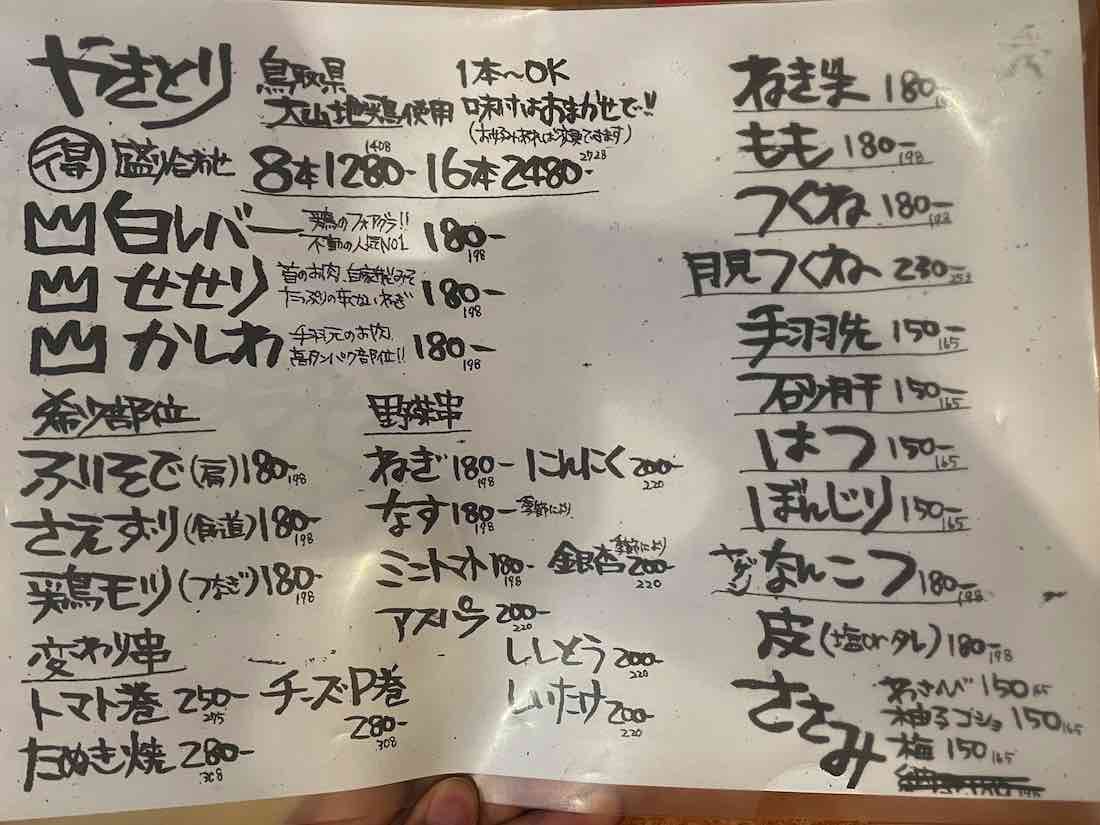 やきとり
鳥取県
大山地鶏使用
1本〜OK
味付けはおまかせで!!
(お好みあれば変更できます)
得 盛り合わせ 8本1280- 1408 16本2480- 2728
白レバー 鶏のフォアグラ!! 不動の人気NO1 180- 198
せせり 首のお肉、自家製みそ たっぷりの辛かいねぎ 180- 198
かしわ 手羽元のお肉、高タンパク部位!! 180- 198
希少部位
ふりそで(肩)180- 198
さえずり(食道)180- 198
鶏モツ(つなぎ)180- 198
変わり串
トマト巻 250- 275
チーズP巻 280- 308
たぬき焼 280- 308
野菜串
ねぎ 180- 198
にんにく 200- 220
なす 180- 198 季節により
ミニトマト 180- 198
銀杏 200- 220 季節により
アスパラ 200- 220
ししとう 200- 220
しいたけ 200- 220
ねぎま 180-
もも 180- 198
つくね 180- 198
月見つくね 230- 253
手羽先 150- 165
砂肝 150- 165
はつ 150- 165
ぼんじり 150- 165
ヤゲンなんこつ 180- 198
皮(塩orタレ) 180- 198
ささみ
わさび 150 165
柚子ゴショ 150 165
梅 150 165